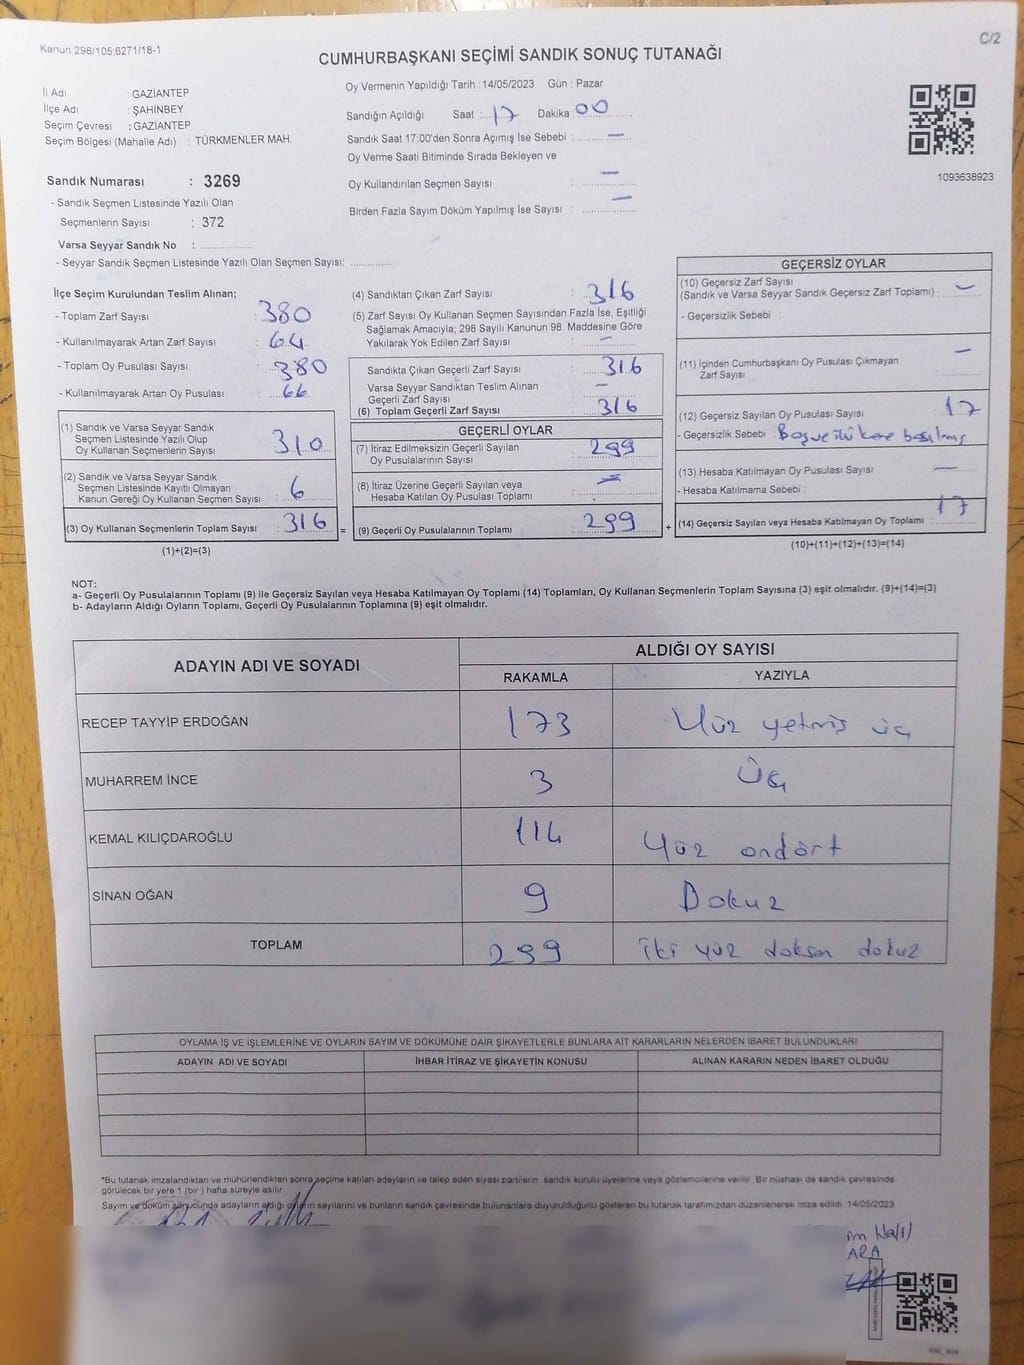 Kanun:298/105;6271/18-1
C/2
CUMHURBAŞKANI SEÇİMİ SANDIK SONUÇ TUTANAĞI
Oy Vermenin Yapıldığı Tarih :14/05/2023 Gün : Pazar
İl Adı : GAZİANTEP
İlçe Adı : ŞAHİNBEY
Seçim Çevresi : GAZİANTEP
Seçim Bölgesi (Mahalle Adı) : TÜRKMENLER MAH.
Sandığın Açıldığı Saat : 17 Dakika : 00
Sandık Saat 17:00'den Sonra Açımış İse Sebebi : —
Oy Verme Saati Bitiminde Sırada Bekleyen ve
Oy Kullandırılan Seçmen Sayısı : —
Birden Fazla Sayım Döküm Yapılmış İse Sayısı : —
1093638923
Sandık Numarası : 3269
- Sandık Seçmen Listesinde Yazılı Olan
Seçmenlerin Sayısı : 372
Varsa Seyyar Sandık No : ..............
- Seyyar Sandık Seçmen Listesinde Yazılı Olan Seçmen Sayısı: ............
İlçe Seçim Kurulundan Teslim Alınan;
- Toplam Zarf Sayısı : 380
- Kullanılmayarak Artan Zarf Sayısı : 64
- Toplam Oy Pusulası Sayısı : 380
- Kullanılmayarak Artan Oy Pusulası : 66
(1) Sandık ve Varsa Seyyar Sandık
Seçmen Listesinde Yazılı Olup
Oy Kullanan Seçmenlerin Sayısı 310
(2) Sandık ve Varsa Seyyar Sandık
Seçmen Listesinde Kayıtlı Olmayan
Kanun Gereği Oy Kullanan Seçmen Sayısı 6
(3) Oy Kullanan Seçmenlerin Toplam Sayısı 316 =
(1)+(2)=(3)
(4) Sandıktan Çıkan Zarf Sayısı : 316
(5) Zarf Sayısı Oy Kullanan Seçmen Sayısından Fazla İse, Eşitliği
Sağlamak Amacıyla; 298 Sayılı Kanunun 98. Maddesine Göre
Yakılarak Yok Edilen Zarf Sayısı : —
Sandıkta Çıkan Geçerli Zarf Sayısı : 316
Varsa Seyyar Sandıktan Teslim Alınan
Geçerli Zarf Sayısı : —
(6) Toplam Geçerli Zarf Sayısı : 316
GEÇERLİ OYLAR
(7) İtiraz Edilmeksizin Geçerli Sayılan
Oy Pusulalarının Sayısı : 299
(8) İtiraz Üzerine Geçerli Sayılan veya
Hesaba Katılan Oy Pusulası Toplamı : —
(9) Geçerli Oy Pusulalarının Toplamı : 299 +
GEÇERSİZ OYLAR
(10) Geçersiz Zarf Sayısı
(Sandık ve Varsa Seyyar Sandık Geçersiz Zarf Toplamı) : —
- Geçersizlik Sebebi :
(11) İçinden Cumhurbaşkanı Oy Pusulası Çıkmayan
Zarf Sayısı : —
(12) Geçersiz Sayılan Oy Pusulası Sayısı : 17
- Geçersizlik Sebebi : Boş ve iki kere basılmış
(13) Hesaba Katılmayan Oy Pusulası Sayısı : —
- Hesaba Katılmama Sebebi :
(14) Geçersiz Sayılan veya Hesaba Katılmayan Oy Toplamı : 17
(10)+(11)+(12)+(13)=(14)
NOT:
a- Geçerli Oy Pusulalarının Toplamı (9) ile Geçersiz Sayılan veya Hesaba Katılmayan Oy Toplamı (14) Toplamları, Oy Kullanan Seçmenlerin Toplam Sayısına (3) eşit olmalıdır. (9)+(14)=(3)
b- Adayların Aldığı Oyların Toplamı, Geçerli Oy Pusulalarının Toplamına (9) eşit olmalıdır.
ADAYIN ADI VE SOYADI
ALDIĞI OY SAYISI
RAKAMLA YAZIYLA
RECEP TAYYİP ERDOĞAN 173 Yüz yetmiş üç
MUHARREM İNCE 3 Üç
KEMAL KILIÇDAROĞLU 114 Yüz ondört
SİNAN OĞAN 9 Dokuz
TOPLAM 299 iki yüz doksan dokuz
OYLAMA İŞ VE İŞLEMLERİNE VE OYLARIN SAYIM VE DÖKÜMÜNE DAİR ŞİKAYETLERLE BUNLARA AİT KARARLARIN NELERDEN İBARET BULUNDUKLARI
ADAYIN ADI VE SOYADI İHBAR İTİRAZ VE ŞİKAYETİN KONUSU ALINAN KARARIN NEDEN İBARET OLDUĞU
*Bu tutanak imzalandıktan ve mühürlendikten sonra seçime katılan adayların ve talep eden siyasi partilerin sandık kurulu üyelerine veya gözlemcilerine verilir. Bir nüshası da sandık çevresinde
görülecek bir yere 1 (bir) hafta süreyle asılır
Sayım ve döküm sonucunda adayların aldığı oyların sayılarını ve bunların sandık çevresinde bulunanlara duyurulduğunu gösteren bu tutanak tarafımızdan düzenlenerek imza edildi. 14/05/2023
Halil
ARA